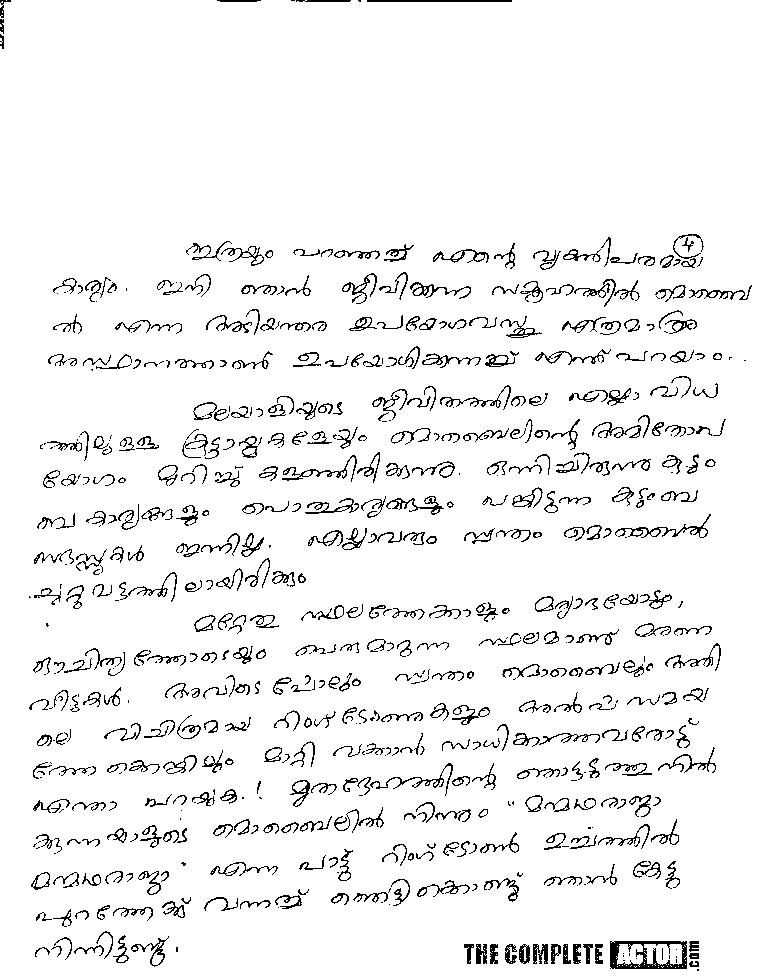 4
ഇത്രയും പറഞ്ഞത് എന്റെ വ്യക്തിപരമായ
കാര്യം. ഇനി ഞാൻ ജീവിക്കുന്ന സമൂഹത്തിൽ മൊബൈ
ൽ എന്ന അടിയന്തര ഉപയോഗവസ്തു എത്രമാത്രം
അസ്ഥാനത്താണ് ഉപയോഗിക്കുന്നത് എന്ന് പറയാം..
മലയാളിയുടെ ജീവിതത്തിലെ എല്ലാ വിധ
ത്തിലുള്ള കൂട്ടായ്മകളേയും മൊബൈലിന്റെ അമിതോപ
യോഗം മുറിച്ച് കളഞ്ഞിരിക്കുന്നു. ഒന്നിച്ചിരുന്നു കുടും
ബ കാര്യങ്ങളും പൊതുകാര്യങ്ങളും പങ്കിടുന്ന കുടുംബ
സദസ്സുകൾ ഇന്നില്ല. എല്ലാവരും സ്വന്തം മൊബൈൽ
ചുറ്റുവട്ടത്തിലായിരിക്കും
മറ്റേതു സ്ഥലത്തേക്കാളും മര്യാദയോടും,
ഔചിത്യത്തോടെയും പെരുമാറുന്ന സ്ഥലമാണ് മരണ
വീടുകൾ. അവിടെ പോലും സ്വന്തം മൊബൈലും അതി
ലെ വിചിത്രമായ റിംഗ്ടോണുകളും അൽപ്പ സമയ
ത്തേക്കെങ്കിലും മാറ്റി വക്കാൻ സാധിക്കാത്തവരോട്
എന്താ പറയുക.! മൃതദേഹത്തിന്റെ തൊട്ടടുത്തു നിൽ
ക്കുന്നയാളുടെ മൊബൈലിൽ നിന്നും "മന്മഥരാജാ
മന്മഥരാജാ" എന്ന പാട്ട് റിംഗ്ടോൺ ഉച്ചത്തിൽ
പുറത്തേക്ക് വന്നത് ഞെട്ടിക്കൊണ്ട് ഞാൻ കേട്ടു
നിന്നിട്ടുണ്ട്.
THE COMPLETE ACTOR.com